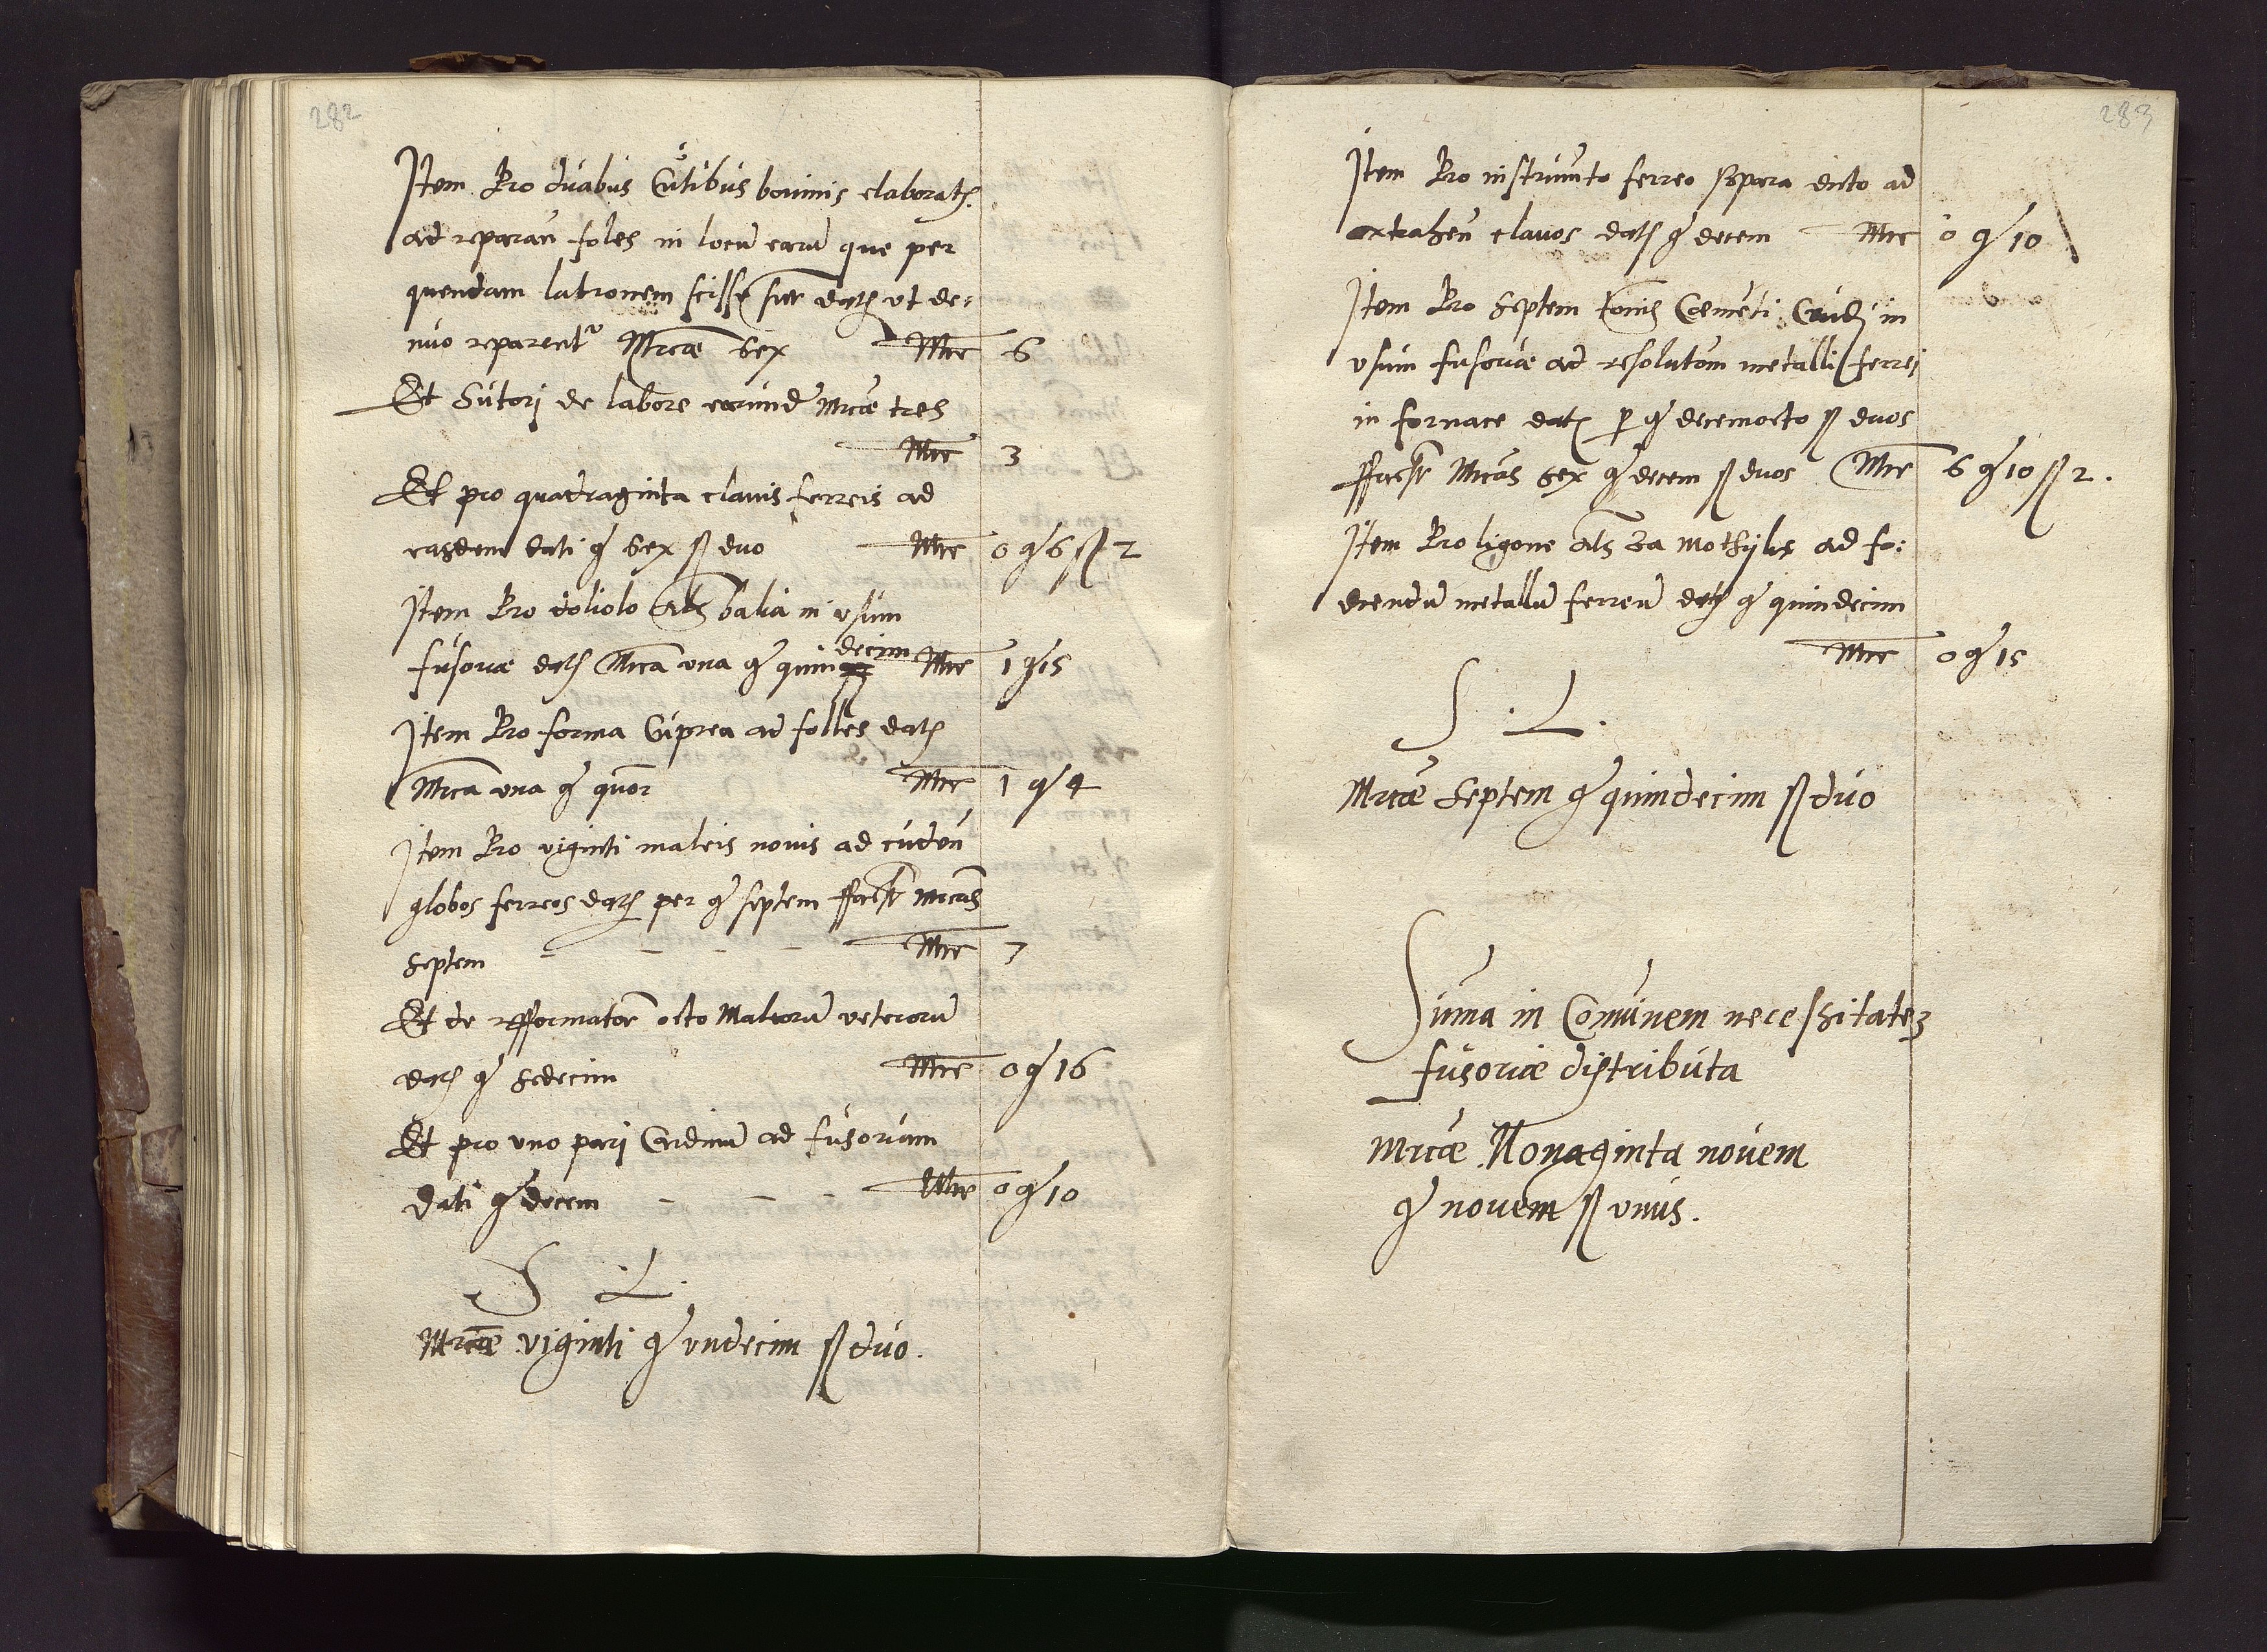 282
Item Pro duabus Cutibus bovinis elaborat
ad reparan foles in locu earu que per
quendam latronem scisse sut dat ut de=
nuo reparentr Mrcae sex Mrc 6
Et Sutori de labore earund Mrcae tres
Mrc 3
Et pro quadraginta clavis ferreis ad
easdem dati g sex ß duo Mrc 0 g 6 ß 2
Item Pro doliolo als balia in usum
fusoriae dat Mrca una g quin decim Mrc 1 g 15
Item Pro forma Cuprea ad folles dat
Mrca una g quor Mrc 1 g 4
Item Pro viginti maleis novis ad cuden
globos ferreos dat per g septem facit Mrcas
septem - - - - Mrc 7
Et de reformatoe octo Maleoru veteroru
dat g sedecim Mrc 0 g 16
Et pro uno pari Cardinu ad fusoriam
dati g decem - - - Mrc 0 g 10
S . L .
Mrcae viginti g undecim ß duo.
283
Item Pro instrumto ferreo szpara dicto ad
extrahen clavos dat g decem Mrc 0 g 10
Item Pro septem tonis Caemeti Crudi in
usum fusoriae ad resolutom metalli ferrei
in fornace dat p g decemocto ß duos
facit Mrcas sex g decem ß duos Mrc 6 g 10 ß 2.
Item Pro ligone als za mothyke ad fo:
diendu metallu ferreu dat g quindecim
Mrc 0 g 15
S . L .
Mrcae septem g quindecim ß duo
Suma in Comunem necessitatez
fusoriae distributa
Mrcae Nonaginta novem
g novem ß unus.